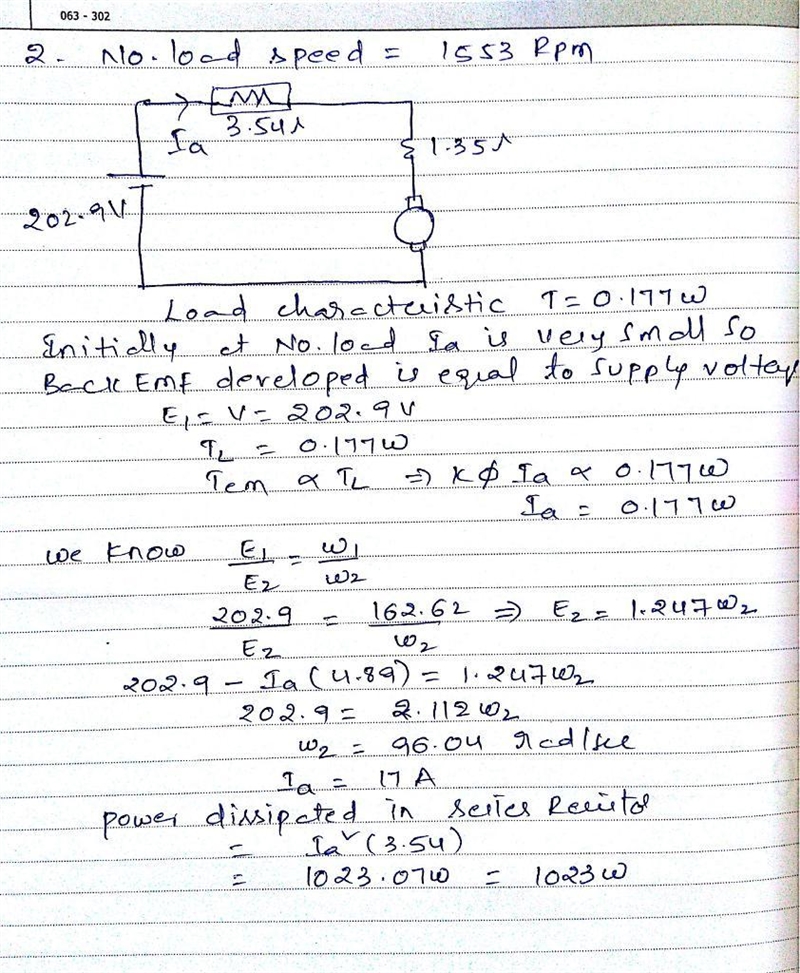 063 - 302
2. No. load speed = 1553 Rpm
Ia
3.54Ω
1.35Ω
202.9V
Load characteristic T = 0.177ω
Initially at No. load Ia is very small so
Back EMF developed is equal to supply voltage
E₁ = V = 202.9V
TL = 0.177ω
Tem ∝ TL ⇒ Kϕ Ia ∝ 0.177ω
Ia = 0.177ω
we know E₁/E₂ = ω₁/ω₂
202.9/E₂ = 162.62/ω₂ ⇒ E₂ = 1.247ω₂
202.9 - Ia (4.89) = 1.247ω₂
202.9 = 2.112ω₂
ω₂ = 96.04 rad/sec
Ia = 17 A
power dissipated in series Resistor
= Ia² (3.54)
= 1023.07w = 1023w